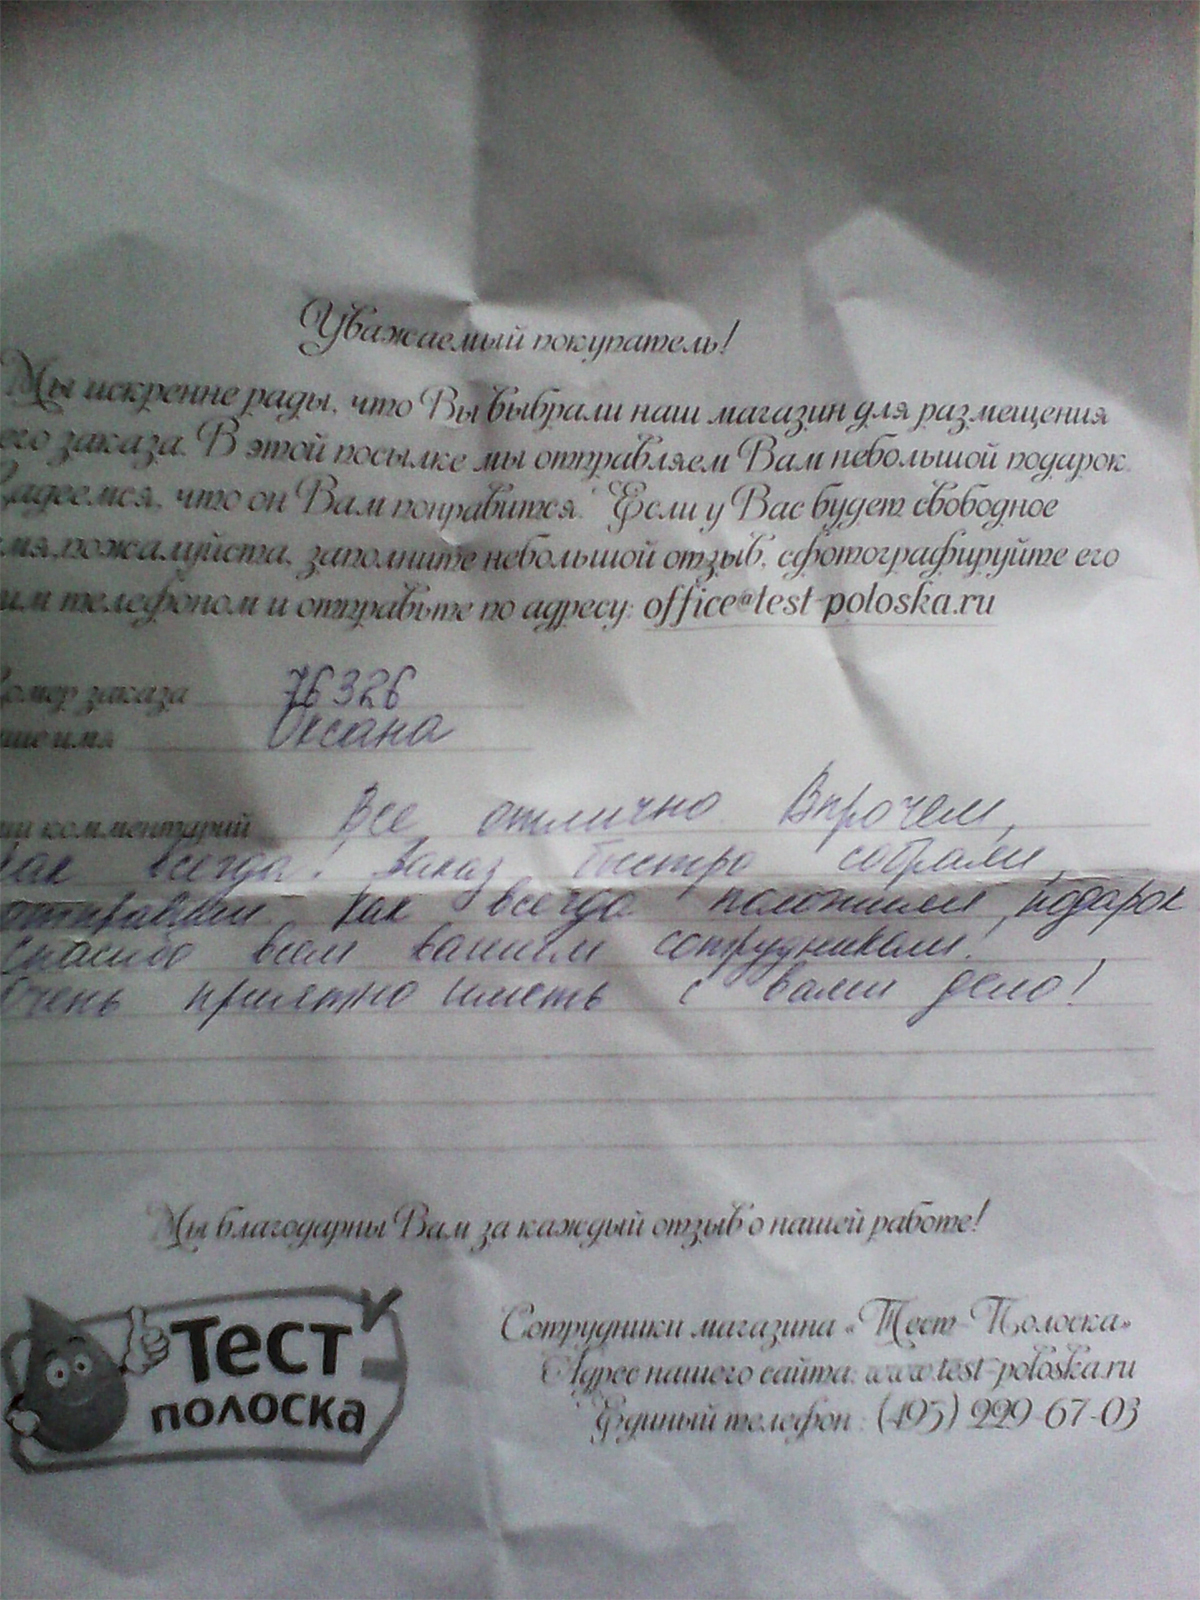 Уважаемый покупатель!
Мы искренне рады, что Вы выбрали наш магазин для размещения
его заказа. В этой посылке мы отправляем Вам небольшой подарок.
адеемся, что он Вам понравится. Если у Вас будет свободное
мя, пожалуйста, заполните небольшой отзыв, сфотографируйте его
им телефоном и отправьте по адресу: office@test-poloska.ru
омер заказа 76326
ше имя Оксана
ш комментарий Все отлично. Впрочем,
как всегда! Заказ быстро собрали,
отправили. Как всегда положили подарок
Спасибо всем вашим сотрудникам!
Очень приятно иметь с вами дело!
Мы благодарны Вам за каждый отзыв о нашей работе!
Тест
полоска
Сотрудники магазина «Тест-Полоска»
Адрес нашего сайта: www.test-poloska.ru
Единый телефон: (495) 229-67-03